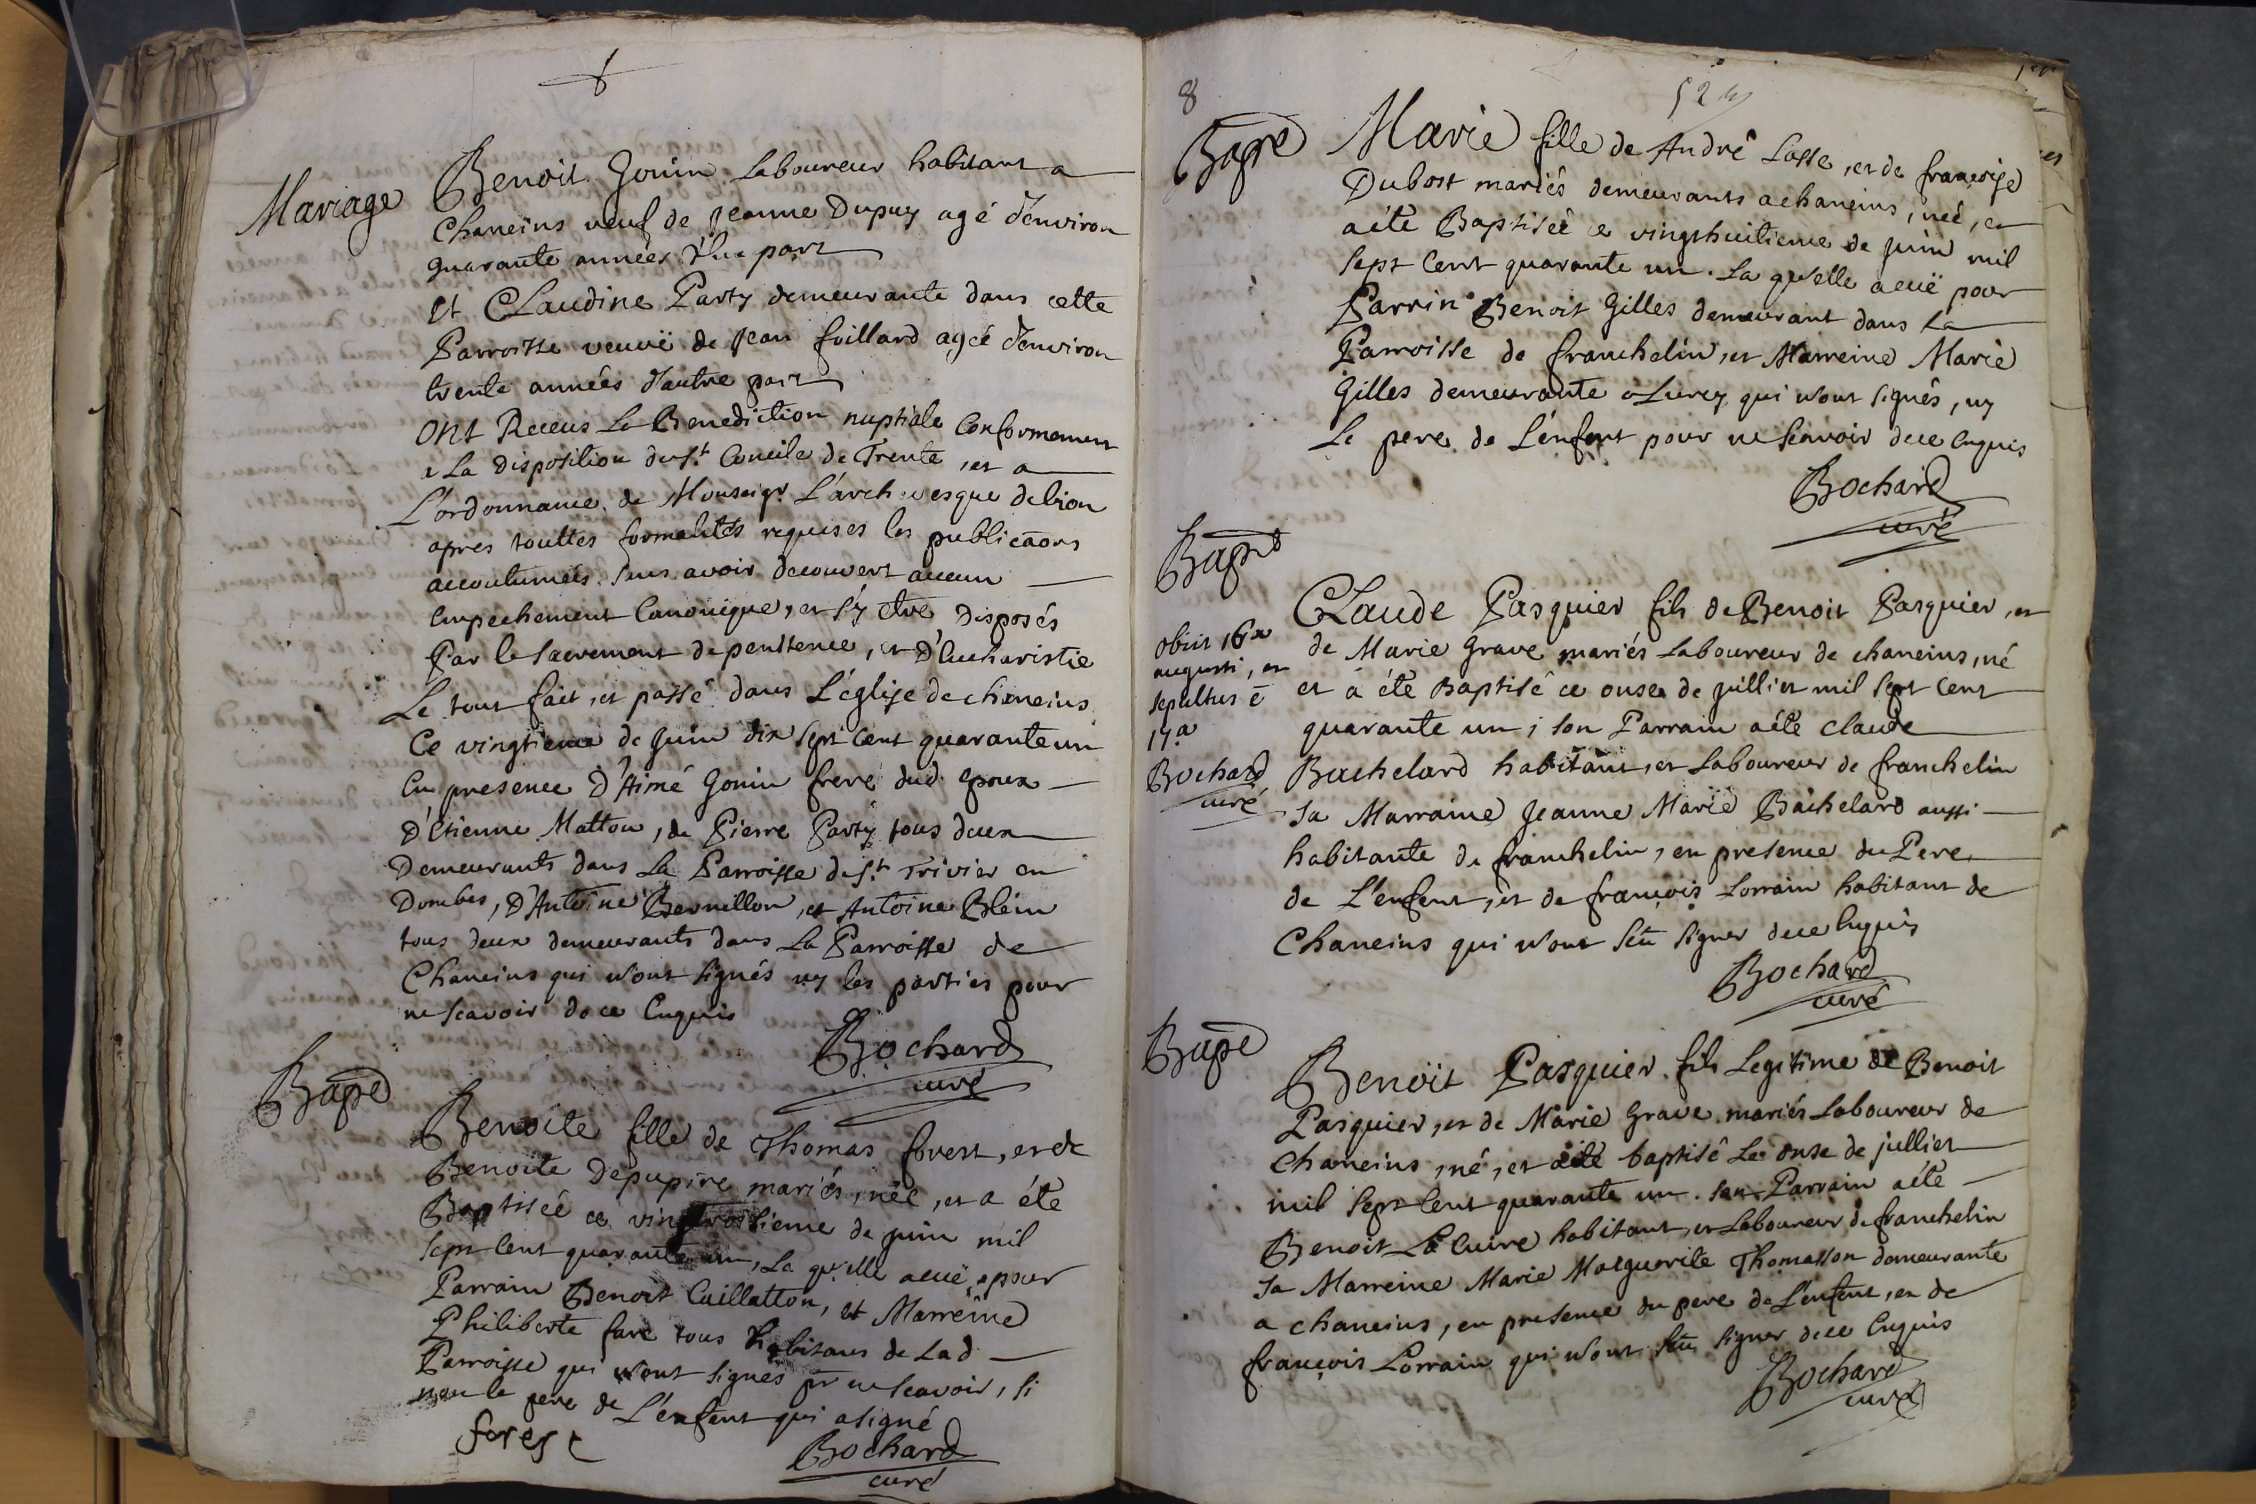 Mariage
Benoit Gonin Laboureur habitant a
Chaneins veuf de jeanne Dupuy agé d'environ
quarante années d'une part
et CLaudine Party demeurante dans cette
Parroisse veuvë de jean foillard agéé d'environ
trente années d'autre part
ONt Receus La Benediction nuptiale Conformement
a La disposition du St Concile de Trente, et a
L'ordonnance de Monseigr L'archevesque de Lion
apres touttes formalités requises les publicãons
accoutumées sans avoir decouvert aucun
empechement Canonique, et s'y etre disposés
Par le sacrement de penitence, et D'Eucharistie
Le tout fait, et passé dans L'église de chaneins
Ce vingtieme de juin dix sept cent quarante un
En presence D'Aimé Gonin frere dud. Epoux
D'Etienne Matton, de Pierre Party tous deux
Demeurants dans La Parroisse de St Trivier en
Dombes, D'Antoine Bernillon, et Antoine Blein
tous deux demeurants dans La Parroisse de
Chaneins qui n'ont signés ny les parties pour
ne scavoir de ce Enquis
Bochard
curé
Bapē
Benoite fille de Thomas forest, et de
Benoite Depupire mariés, néé, et a été
Baptiséé ce vingt troisieme de juin mil
sept cent quarante un, La qu'elle a eüe pour
Parrain Benoit Cuillatton, et Marreine
Philiberte fare tous habitans de Lad.
Parroisse qui n'ont signés pr ne scavoir, si
non le pere de L'enfent qui a signé
forest
Bochard
curé
8
524
Bapē
Marie fille de André Lasse, et de françoise
Dubost mariés demeurants a chaneins, néé, et
a été Baptiséé ce vingthuitieme de juin mil
sept Cent quarante un. La qu'elle a eüe pour
Parrin Benoit Gilles demeurant dans La
Parroisse de franchelin, et Marreine Marie
Gilles demeurante a Lurcy qui n'ont signés, ny
Le pere de L'enfent pour ne scavoir de ce Enquis
Bochard
curé
Bapē
obiit 16a
augusti, et
sepultus ē
17.a
Bochard
curé
CLaude Pasquier fils de Benoit Pasquier, et
de Marie Grave mariés Laboureur de chaneins, né
et a été Baptisé ce onse de juillet mil sept Cent
quarante un; son Parrain a été claude
Bachelard habitant, et Laboureur de franchelin
sa Marraine Jeanne Marie Bachelard aussi
habitante de franchelin, en presence du Pere
de L'enfent, et de françois Lorrain habitant de
Chaneins qui n'ont sçu signer de ce Enquis
Bochard
curé
Bapē
Benoit Pasquier fils Legitime de Benoit
Pasquier, et de Marie Grave mariés Laboureur de
Chaneins, né, et a été baptisé Le onse de juillet
mil sept Cent quarante un. son Parrain a été
Benoit La Cuire habitant, et Laboureur de franchelin
sa Marreine Marie Marguerite Thomasson demeurante
a chaneins, en presence du pere de L'enfent, et de
françois Lorrain qui n'ont sçu signer de ce Enquis
Bochard
curé